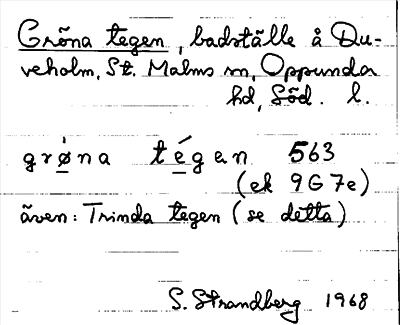 Gröna tegen, badställe å Du-
veholm, St. Malms sn, Oppunda
hd, Söd. l.
grø̀na tégan 563
(ek 9G7e)
även: Trinda tegen (se detta)
S. Strandberg 1968